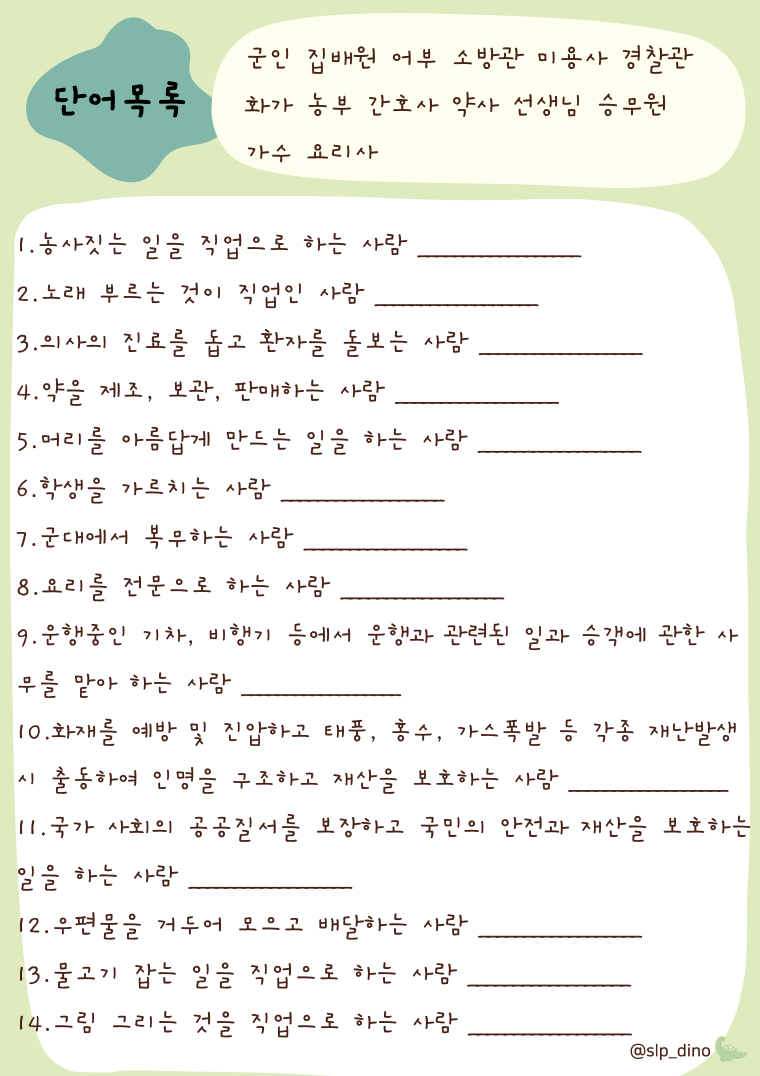 단어목록
군인 집배원 어부 소방관 미용사 경찰관
화가 농부 간호사 약사 선생님 승무원
가수 요리사
1.농사짓는 일을 직업으로 하는 사람 ________________
2.노래 부르는 것이 직업인 사람 ________________
3.의사의 진료를 돕고 환자를 돌보는 사람 ________________
4.약을 제조, 보관, 판매하는 사람 ________________
5.머리를 아름답게 만드는 일을 하는 사람 ________________
6.학생을 가르치는 사람 ________________
7.군대에서 복무하는 사람 ________________
8.요리를 전문으로 하는 사람 ________________
9.운행중인 기차, 비행기 등에서 운행과 관련된 일과 승객에 관한 사
무를 맡아 하는 사람 ________________
10.화재를 예방 및 진압하고 태풍, 홍수, 가스폭발 등 각종 재난발생
시 출동하여 인명을 구조하고 재산을 보호하는 사람 ________________
11.국가 사회의 공공질서를 보장하고 국민의 안전과 재산을 보호하는
일을 하는 사람 ________________
12.우편물을 거두어 모으고 배달하는 사람 ________________
13.물고기 잡는 일을 직업으로 하는 사람 ________________
14.그림 그리는 것을 직업으로 하는 사람 ________________
@slp_dino